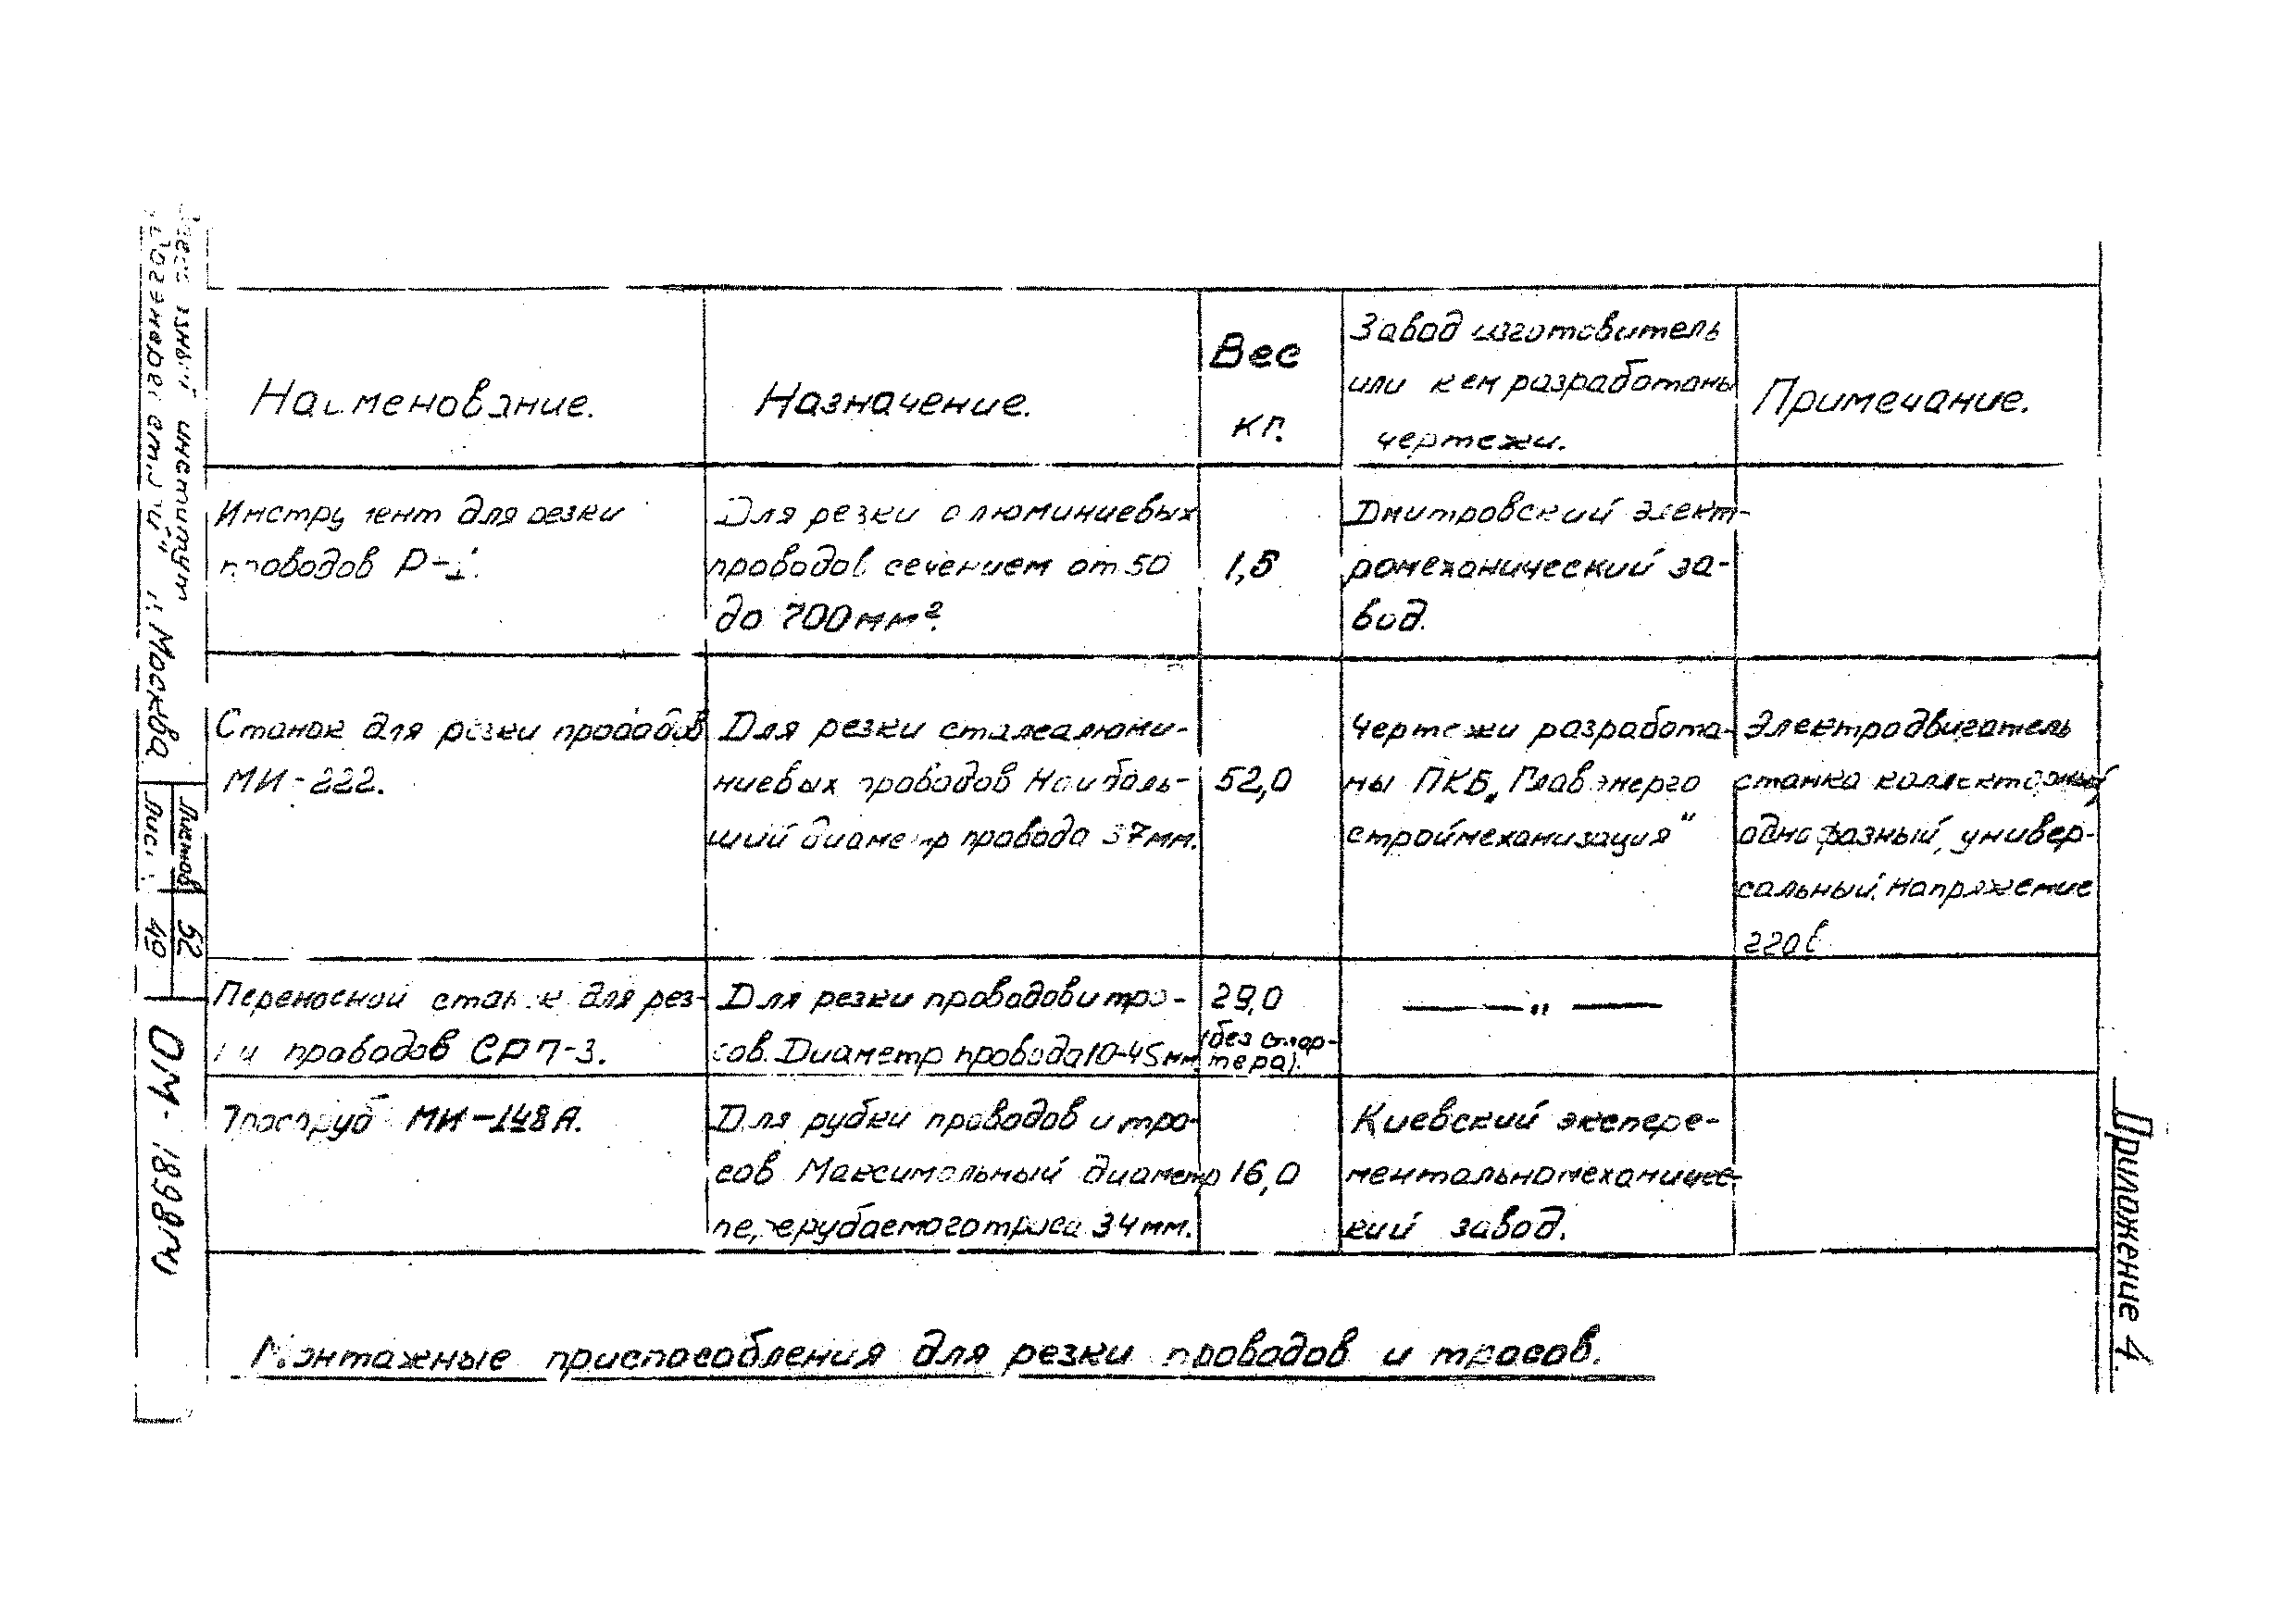 Приложение 4.
Наименование.
Назначение.
Вес
кг.
Завод изготовитель
или кем разработаны
чертежи.
Примечание.
Инструмент для резки
проводов Р-1.
Для резки алюминиевых
проводов сечением от 50
до 700 мм².
1,5
Дмитровский элект-
ромеханический за-
вод.
Станок для резки проводов
МИ-222.
Для резки сталеалюми-
ниевых проводов Наиболь-
ший диаметр провода 37мм.
52,0
Чертежи разработа-
ны ПКБ „Главэнерго
строймеханизация"
Электродвигатель
станка коллекторный
однофазный, универ-
сальный. Напряжение
220в
Переносной станок для рез-
ки проводов СРП-3.
Для резки проводов и тро-
сов. Диаметр провода 10-45мм.
29,0
(без стар-
тера).
— " —
Тросоруб МИ-148А.
Для рубки проводов и тро-
сов Максимальный диаметр
перерубаемого троса 34мм.
16,0
Киевский экспере-
ментальномеханичес-
кий завод.
Монтажные приспособления для резки проводов и тросов.
институт
г. Москва
Листов 52
Лист 49
ОМ-1898